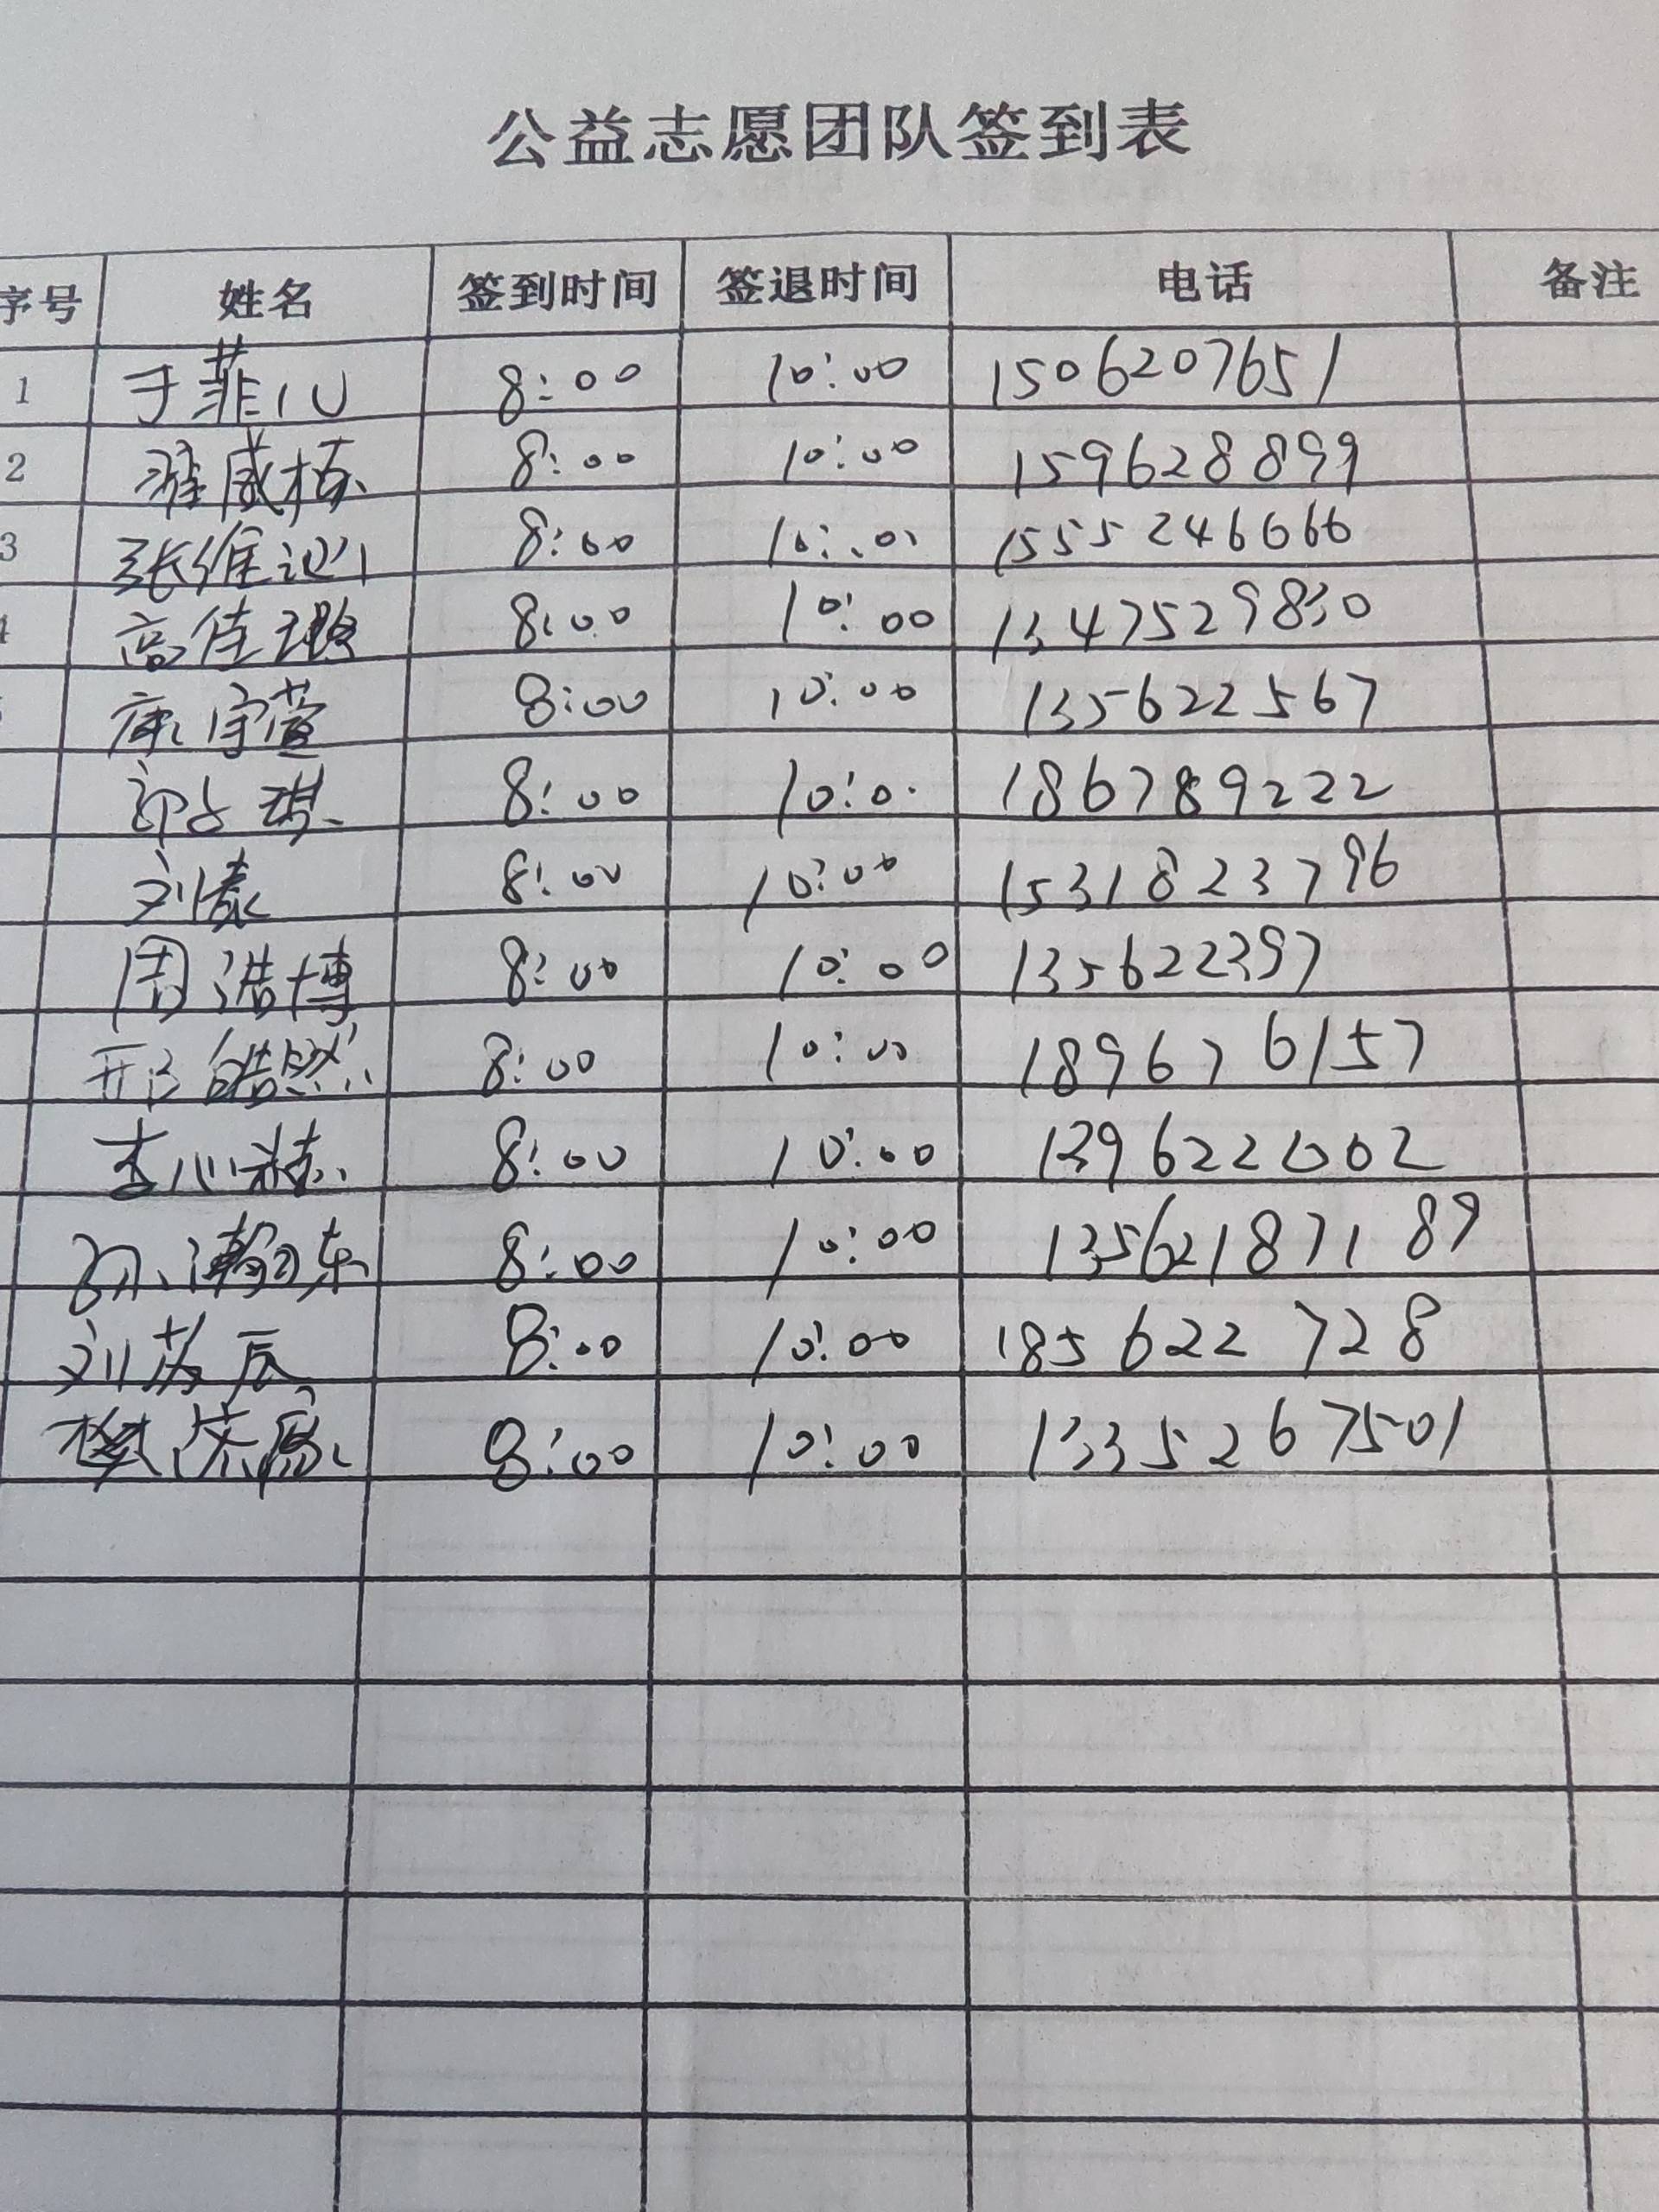 公益志愿团队签到表
序号 姓名 签到时间 签退时间 电话 备注
1 于菲 8:00 10:00 1506207651
2 威栋 8:00 10:00 159628899
3 张维 8:00 10:00 1555246666
高佳 8:00 10:00 1347529830
康宇萱 8:00 10:00 135622567
琪 8:00 10:0 186789222
刘 8:00 10:00 15318233796
周浩博 8:00 10:00 135622397
邢皓然 8:00 10:00 189676157
李心 8:00 10:00 139622002
孙瀚东 8:00 10:00 13562187189
刘芳辰 8:00 10:00 185622728
樊 8:00 10:00 1335267501